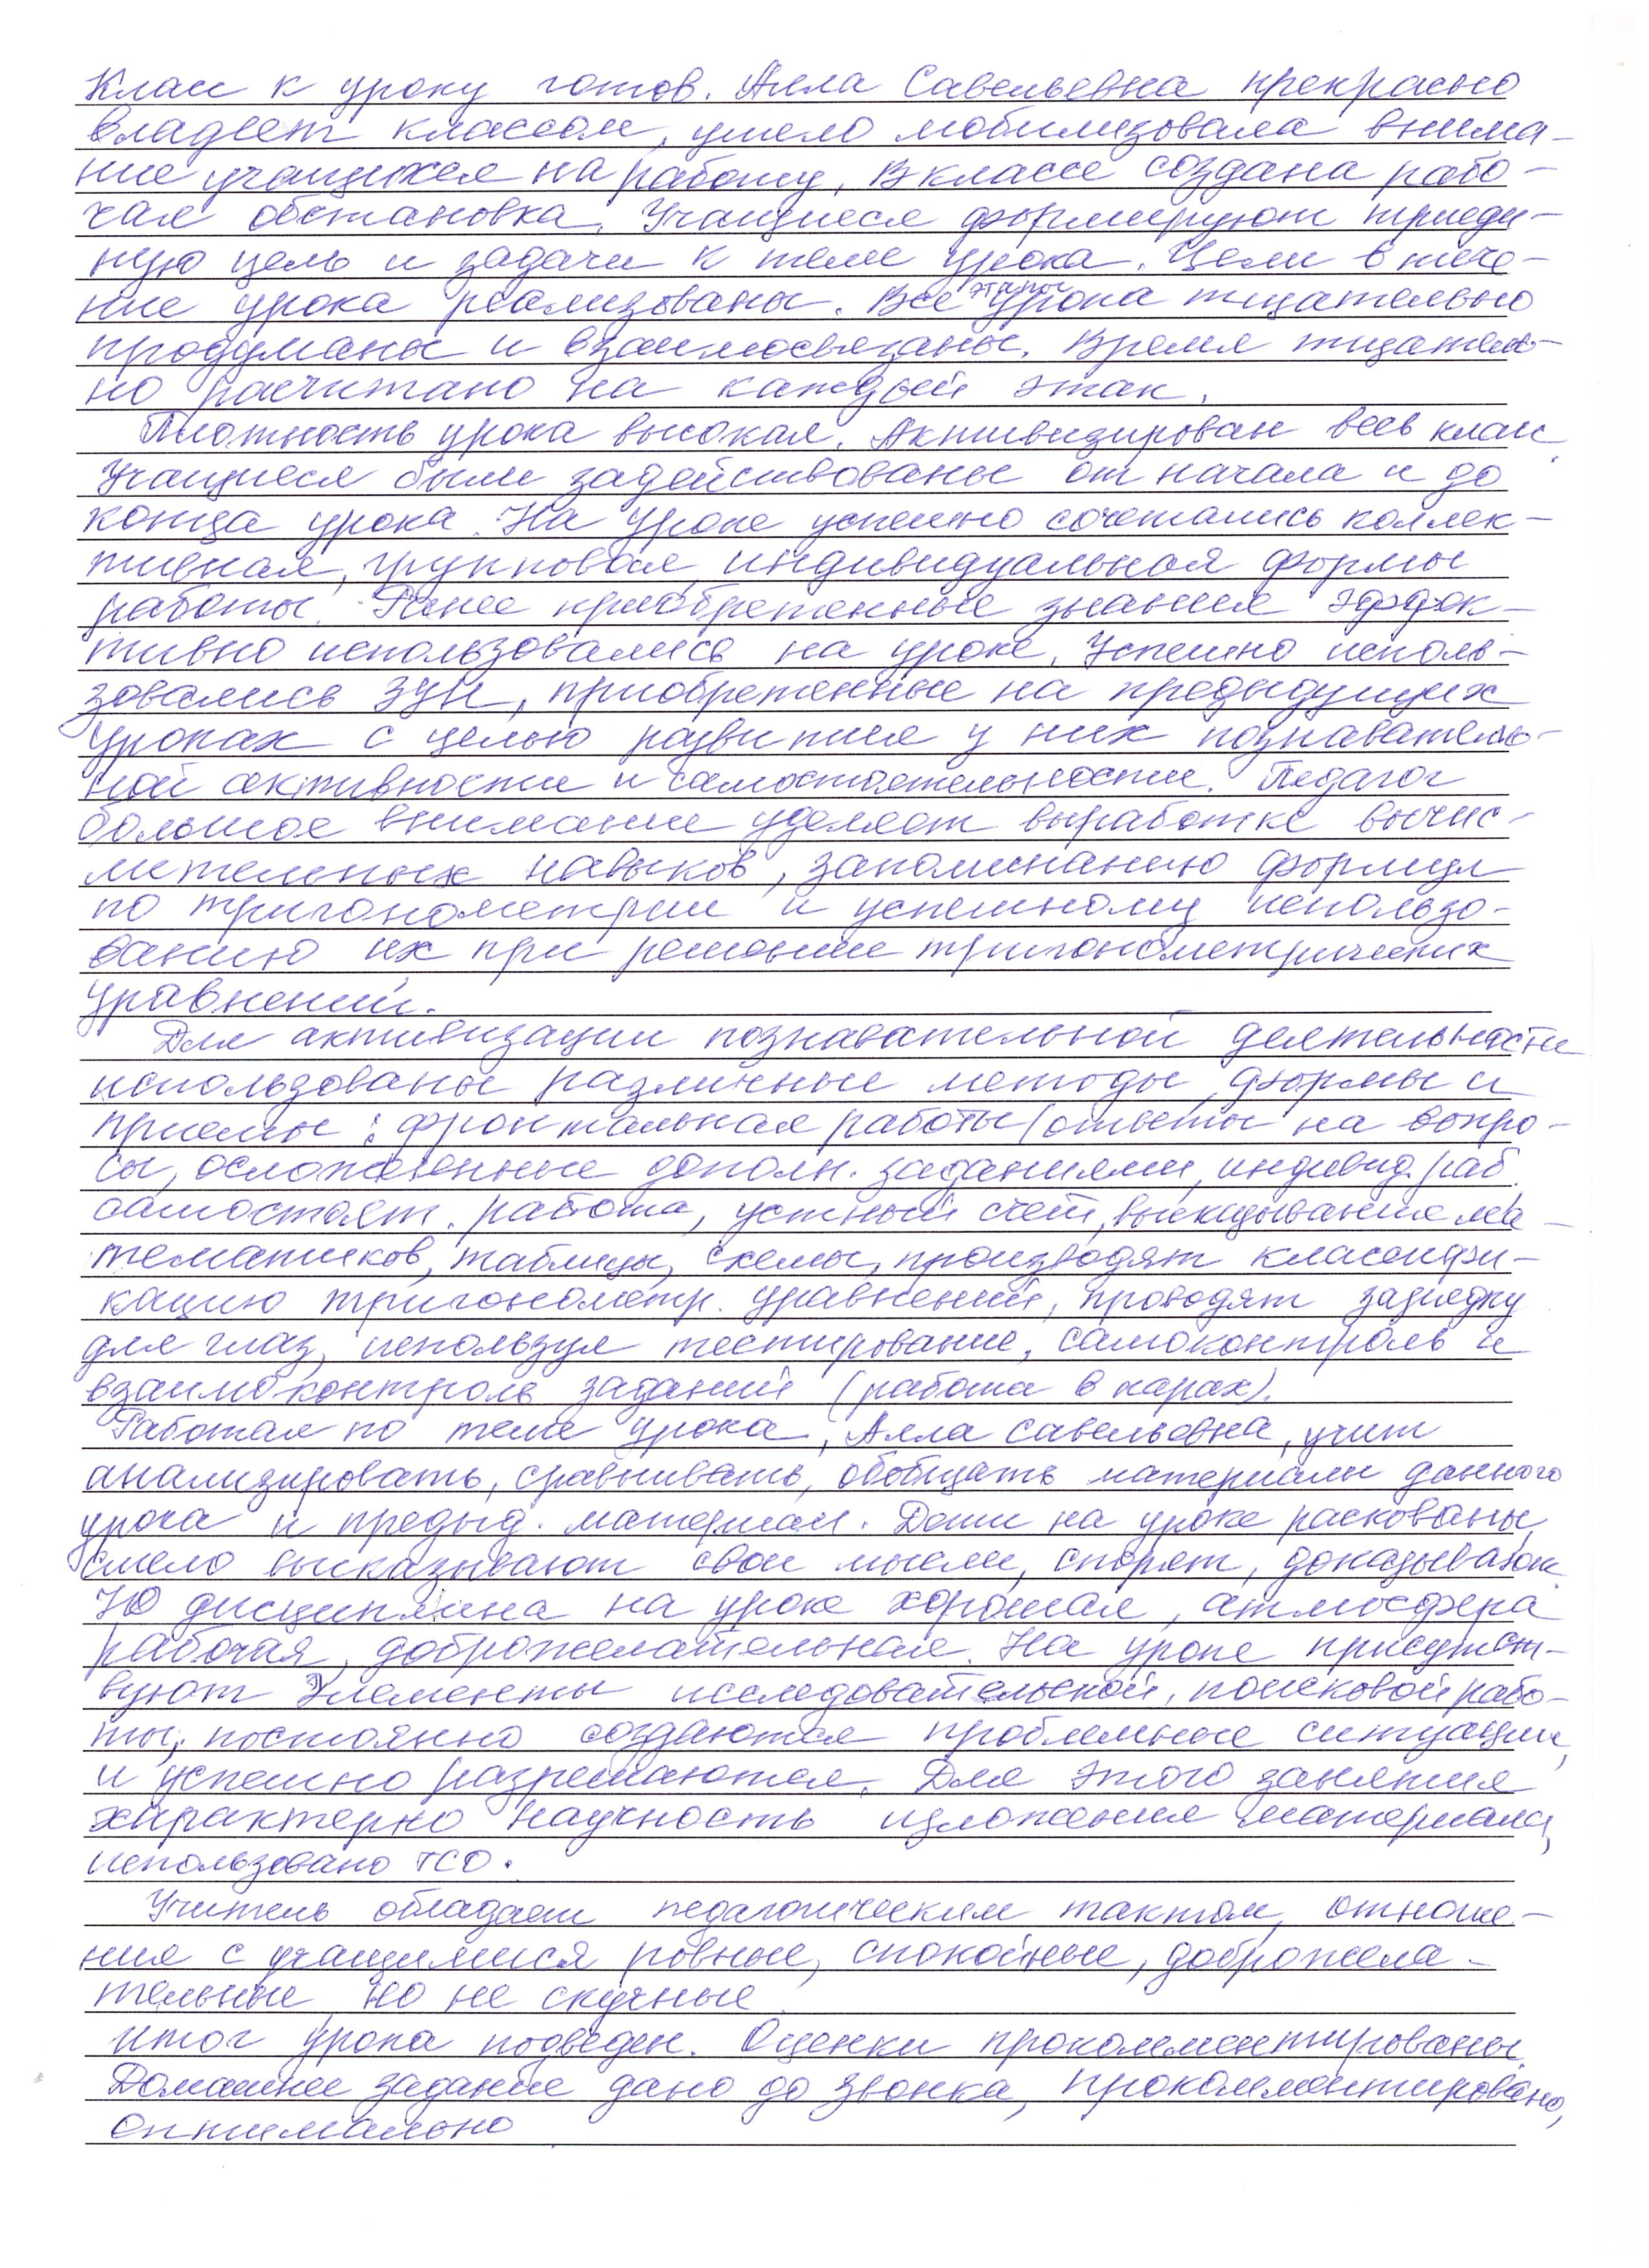 Класс к уроку готов. Алла Савельевна прекрасно
владеет классом, умело мобилизовала внима-
ние учащихся на работу, В классе создана рабо-
чая обстановка. Учащиеся формируют триеди-
ную цель и задачи к теме урока. Цели в тече-
ние урока реализованы. Все этапы урока тщательно
продуманы и взаимосвязаны. Время тщатель-
но расчитано на каждый этап.
Плотность урока высокая. Активизирован весь класс.
Учащиеся были задействованы от начала и до
конца урока. На уроке успешно сочетались коллек-
тивная, групповая, индивидуальная формы
работы. Ранее приобретенные знания эффек-
тивно использовались на уроке. Успешно исполь-
зовались ЗУН, приобретенные на предыдущих
уроках с целью развития у них познаватель-
ной активности и самостоятельности. Педагог
большое внимание уделяет выработке вычис-
лительных навыков, запоминанию формул
по тригонометрии и успешному использо-
ванию их при решении тригонометрических
уравнений.
Для активизации познавательной деятельности
использованы различные методы, формы и
приемы: фронтальная работы (ответы на вопро-
сы, осложненные дополн. заданиями, индивид. раб.
самостоят. работа, устный счет, высказывания ма-
тематиков, таблицы, схемы, производят классифи-
кацию тригонометр. уравнений, проводят зарядку
для глаз, используя тестирование, самоконтроль и
взаимоконтроль заданий (работа в парах).
Работая по теме урока, Алла Савельевна, учит
анализировать, сравнивать, обобщать материалы данного
урока и предыд. материал. Дети на уроке раскованы,
смело высказывают свои мысли, спорят, доказывают.
Но дисциплина на уроке хорошая, атмосфера
рабочая, доброжелательная. На уроке присутст-
вуют элементы исследовательской, поисковой рабо-
ты, постоянно создаются проблемные ситуации,
и успешно разрешаются. Для этого занятия
характерно научность изложения материала,
использовано ТСО.
Учитель обладает педагогическим тактом, отноше-
ния с учащимися ровные, спокойные, доброжела-
тельные но не скучные
итог урока подведен. Оценки прокомментированы.
Домашнее задание дано до звонка, прокомментировано,
оптимально